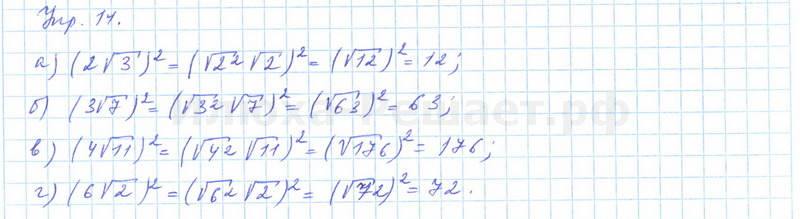 Упр. 11.
а) (2√3)² = (√2² √2)² = (√12)² = 12;
б) (3√7)² = (√3² √7)² = (√63)² = 63;
в) (4√11)² = (√4² √11)² = (√176)² = 176;
г) (6√2)² = (√6² √2)² = (√72)² = 72.